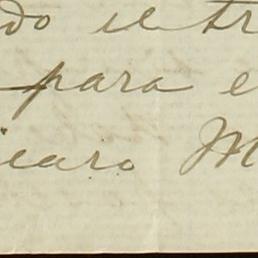 do el tr
para e
icaro M